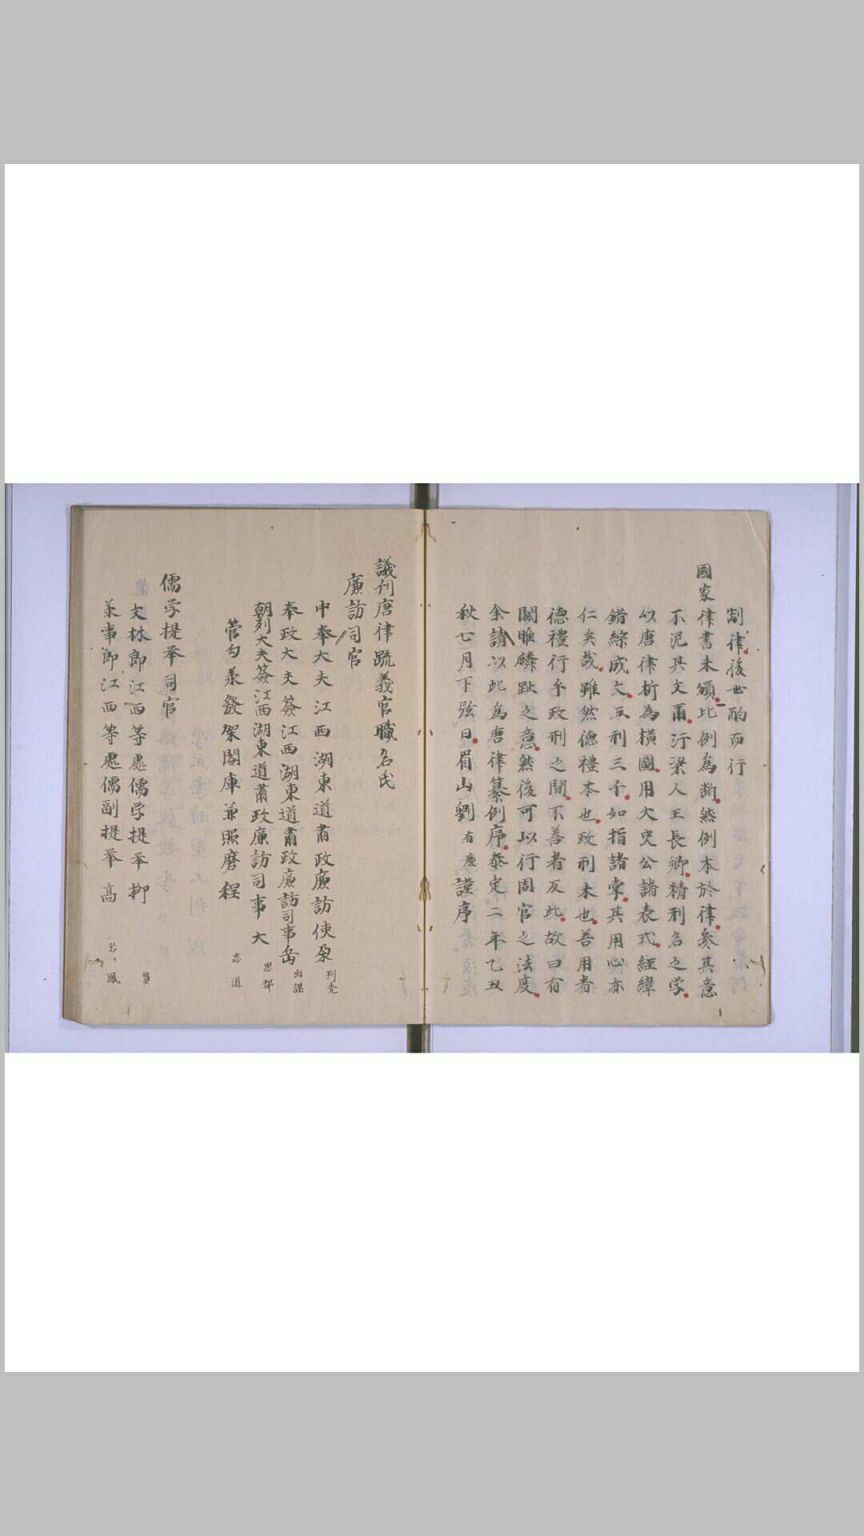 制律後世酌而行
國家律書未頒比例為斷然例本於律參其意
不泥其文爾汴梁人王長卿精刑名之学
以唐律析為橫圖用太史公諸表式經緯
錯綜成文五刑三千如指諸掌其用心亦
仁矣哉雖然德禮本也政刑末也善用者
德禮行乎政刑之間不善者反此故曰有
關睢麟趾之意然後可以行周官之法度
余請以此為唐律纂例序泰定二年乙丑
秋七月下弦日眉山劉有慶謹序
議刊唐律疏義官職名氏
廉訪司官
中奉大夫江西湖東道肅政廉訪使朶列禿
奉政大夫簽江西湖東道肅政廉訪司事岳出謀
朝列大夫簽江西湖東道肅政廉訪司事大思都
管勾承發架閣庫兼照磨程志道
儒学提举司官
文林郎江西等處儒学提举柳贇
承事郎江西等處儒副提举高若鳳